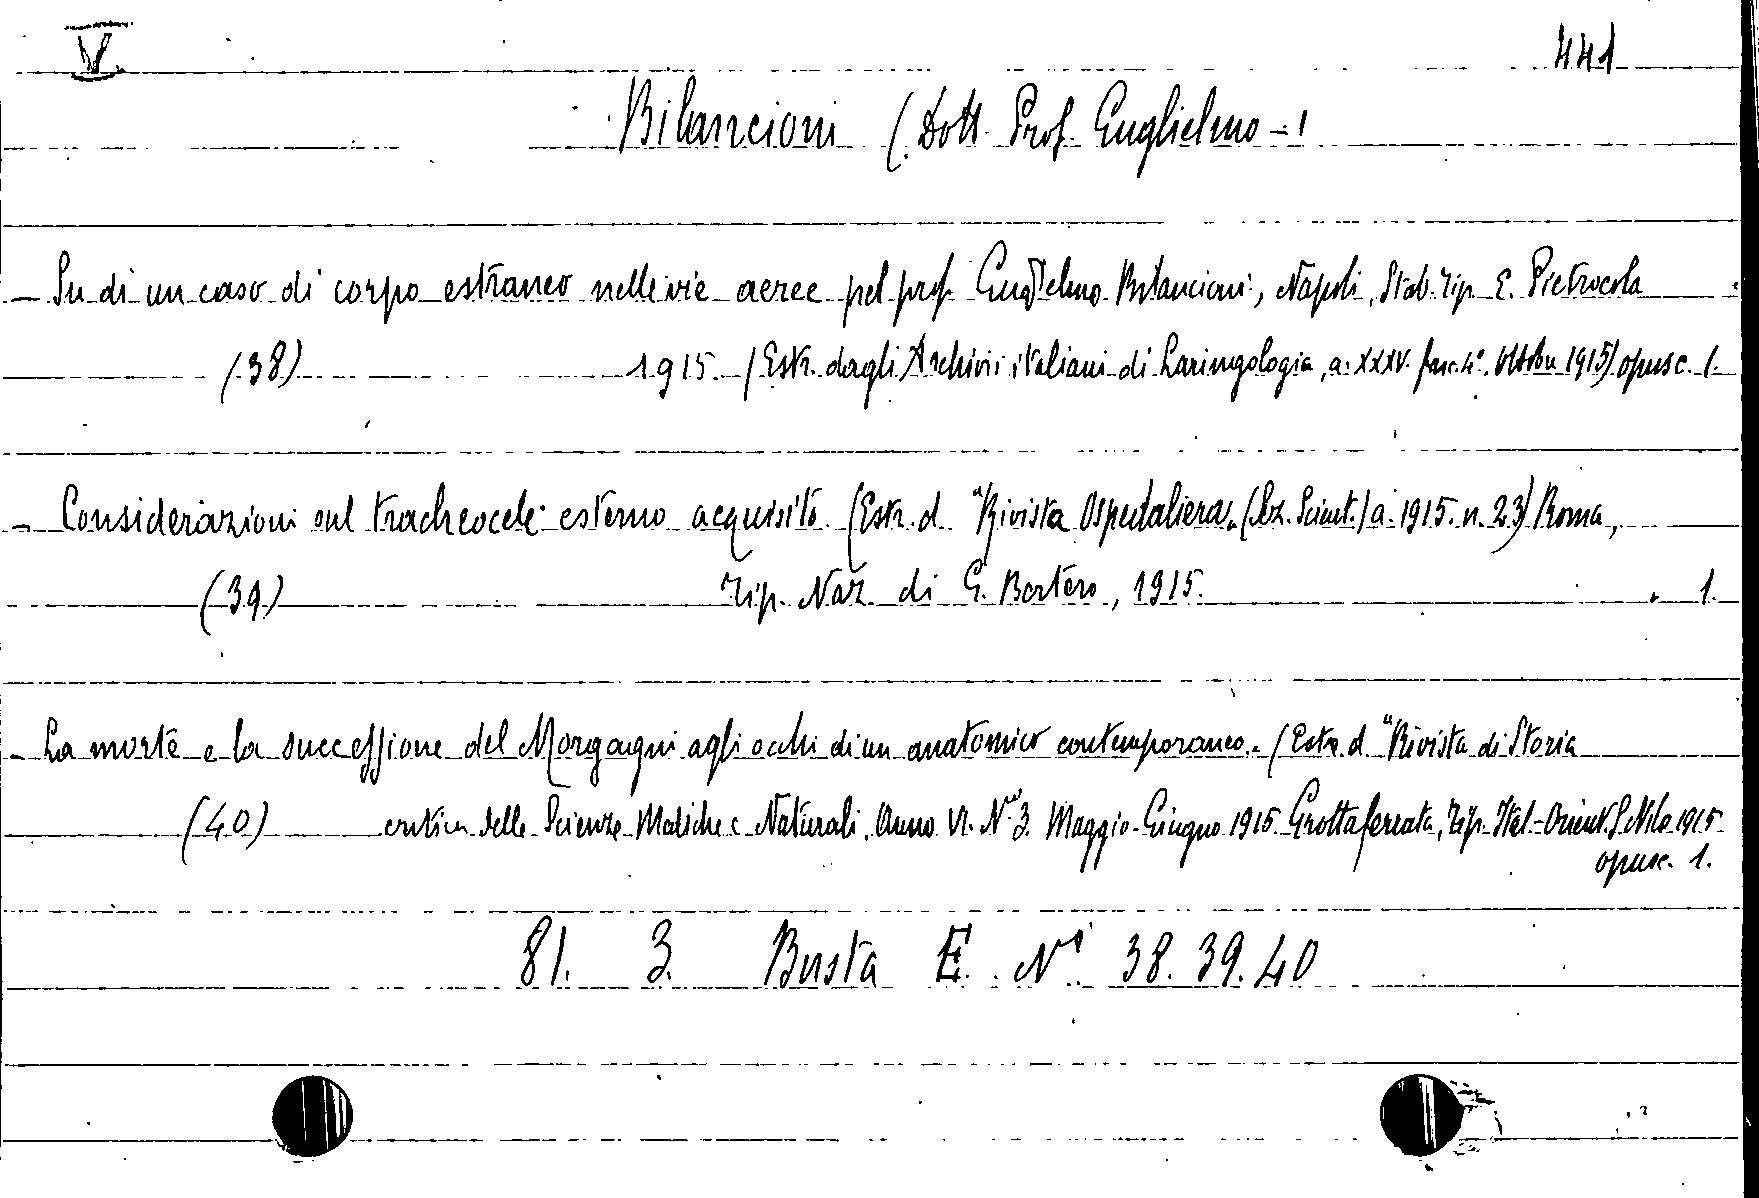 V.
441
Bilancioni (Dott. Prof. Guglielmo -)
- Su di un caso di corpo estraneo nelle vie aeree pel prof. Guglielmo Bilancioni, Napoli, Stab. Tip. E. Pietrocola
(38) 1915. (Estr. dagli Archivii italiani di Laringologia, a. XXXV. fasc. 4º. Ottobre 1915) opusc. 1.
- Considerazioni sul tracheocele esterno acquisito. (Estr. d. "Rivista Ospedaliera" (Sez. Scient.) a. 1915. n. 23) Roma,
(39) Tip. Naz. di G. Bertero, 1915. " 1.
- La morte e la successione del Morgagni agli occhi di un anatomico contemporaneo. - (Estr. d. "Rivista di Storia
(40) critica delle Scienze Mediche e Naturali. Anno VI. Nº 3. Maggio-Giugno 1915. Grottaferrata, Tip. Ital.-Orient. S. Nilo 1915
opusc. 1.
81. 3. Busta E. Nⁱ 38. 39. 40